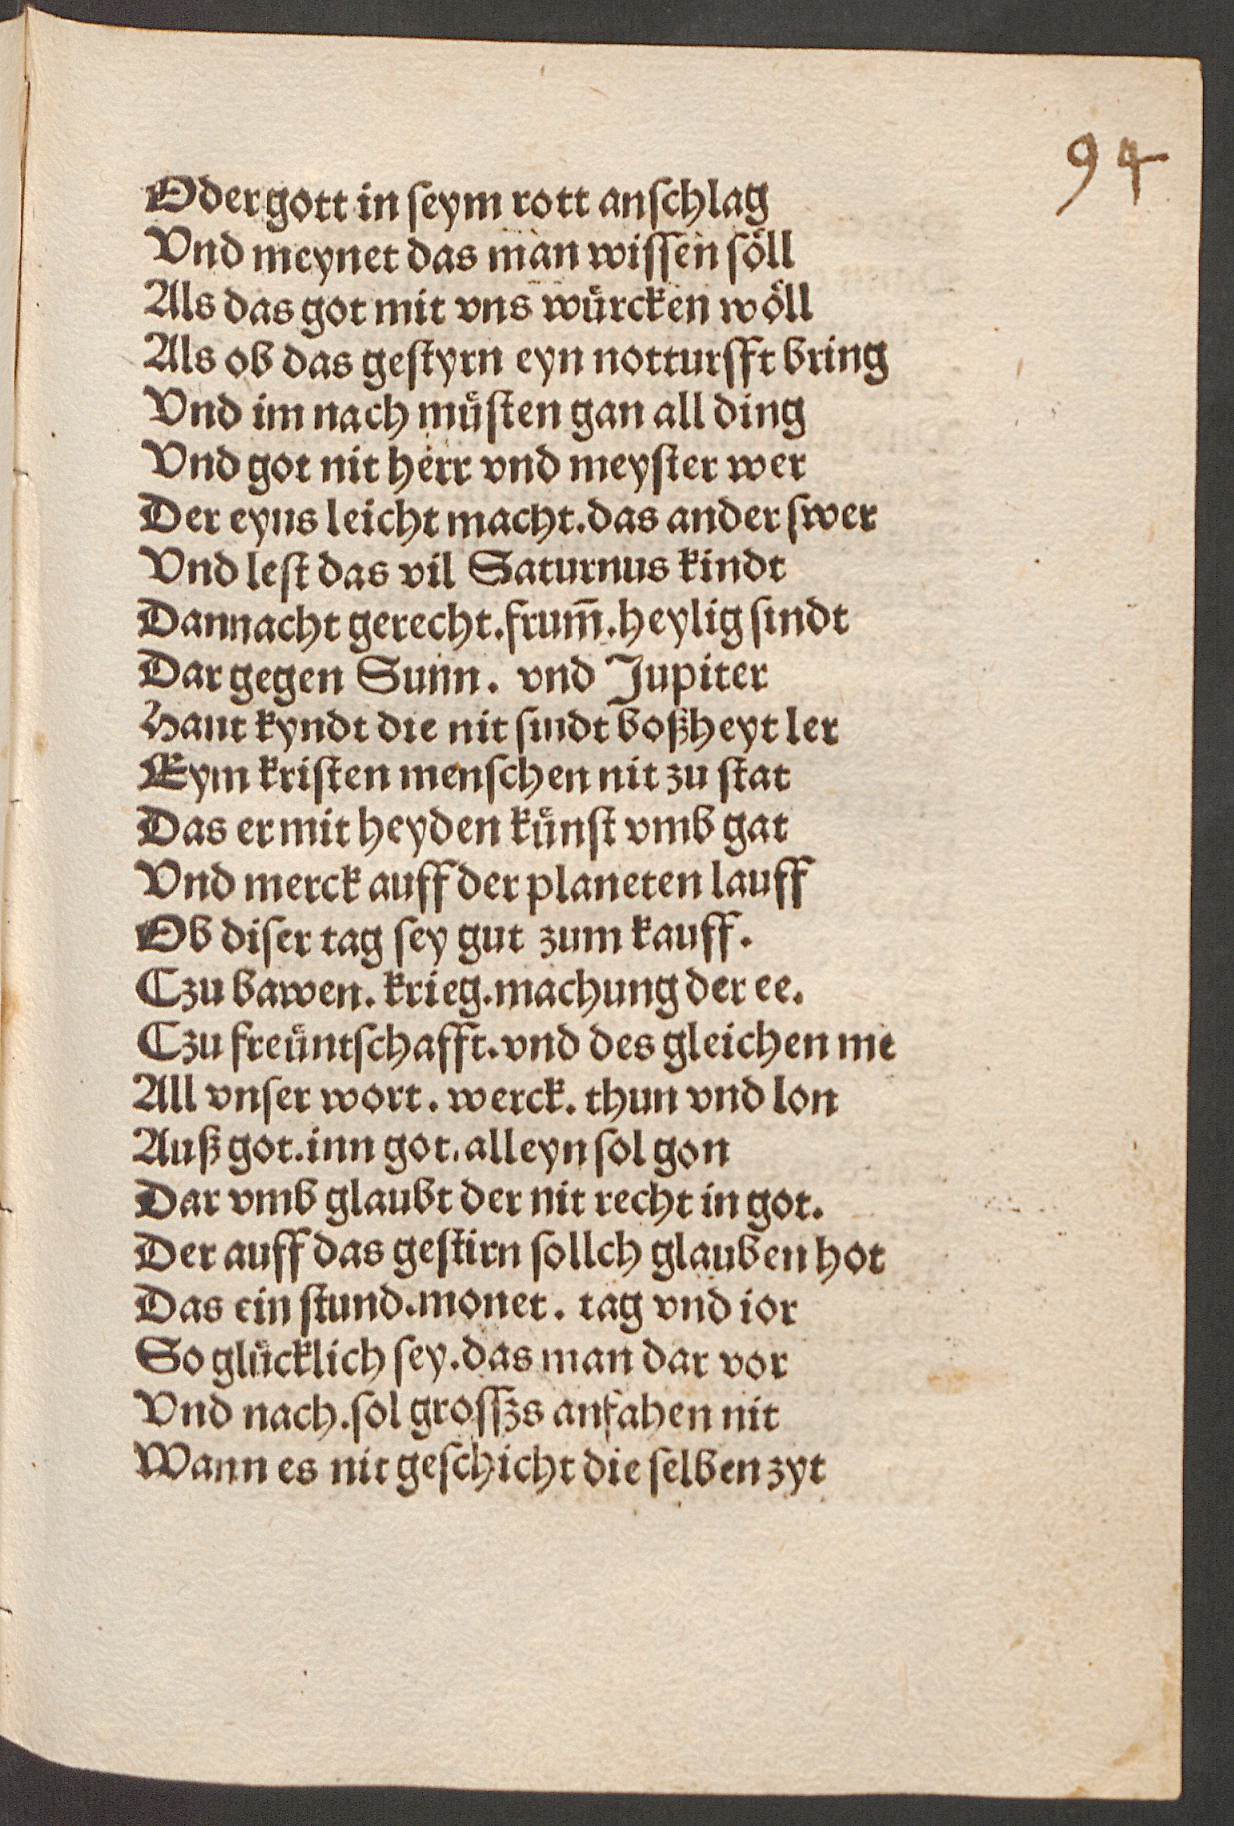 94
Oder gott in ſeym rott anſchlag
Vnd meynet das man wiſſen ſoͤll
Als das got mit vns wuͤrcken woͤll
Als ob das geſtyrn eyn notturfft bring
Vnd im nach muͤſten gan all ding
Vnd got nit herr vnd meyſter wer
Der eyns leicht macht. das ander ſwer
Vnd leſt das vil Saturnus kindt
Dannacht gerecht. frum̄. heylig ſindt
Dar gegen Sunn. vnd Jupiter
Hant kyndt die nit ſindt boßheyt ler
Eym kriſten menſchen nit zu ſtat
Das er mit heyden kuͤnſt vmb gat
Vnd merck auff der planeten lauff
Ob diſer tag ſey gut zum kauff.
Czu bawen. krieg. machung der ee.
Czu freuͤntſchafft. vnd des gleichen me
All vnſer wort. werck. thun vnd lon
Auß got. inn got. alleyn ſol gon
Dar vmb glaubt der nit recht in got.
Der auff das geſtirn ſollch glauben hot
Das ein ſtund. monet. tag vnd ior
So gluͤcklich ſey. das man dar vor
Vnd nach. ſol groſſzs anfahen nit
Wann es nit geſchicht die ſelben zyt